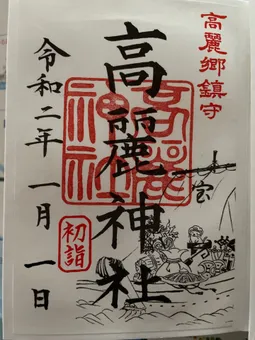 高麗郷鎮守
高麗神社
高麗
神社
令和二年一月一日
初詣
宝